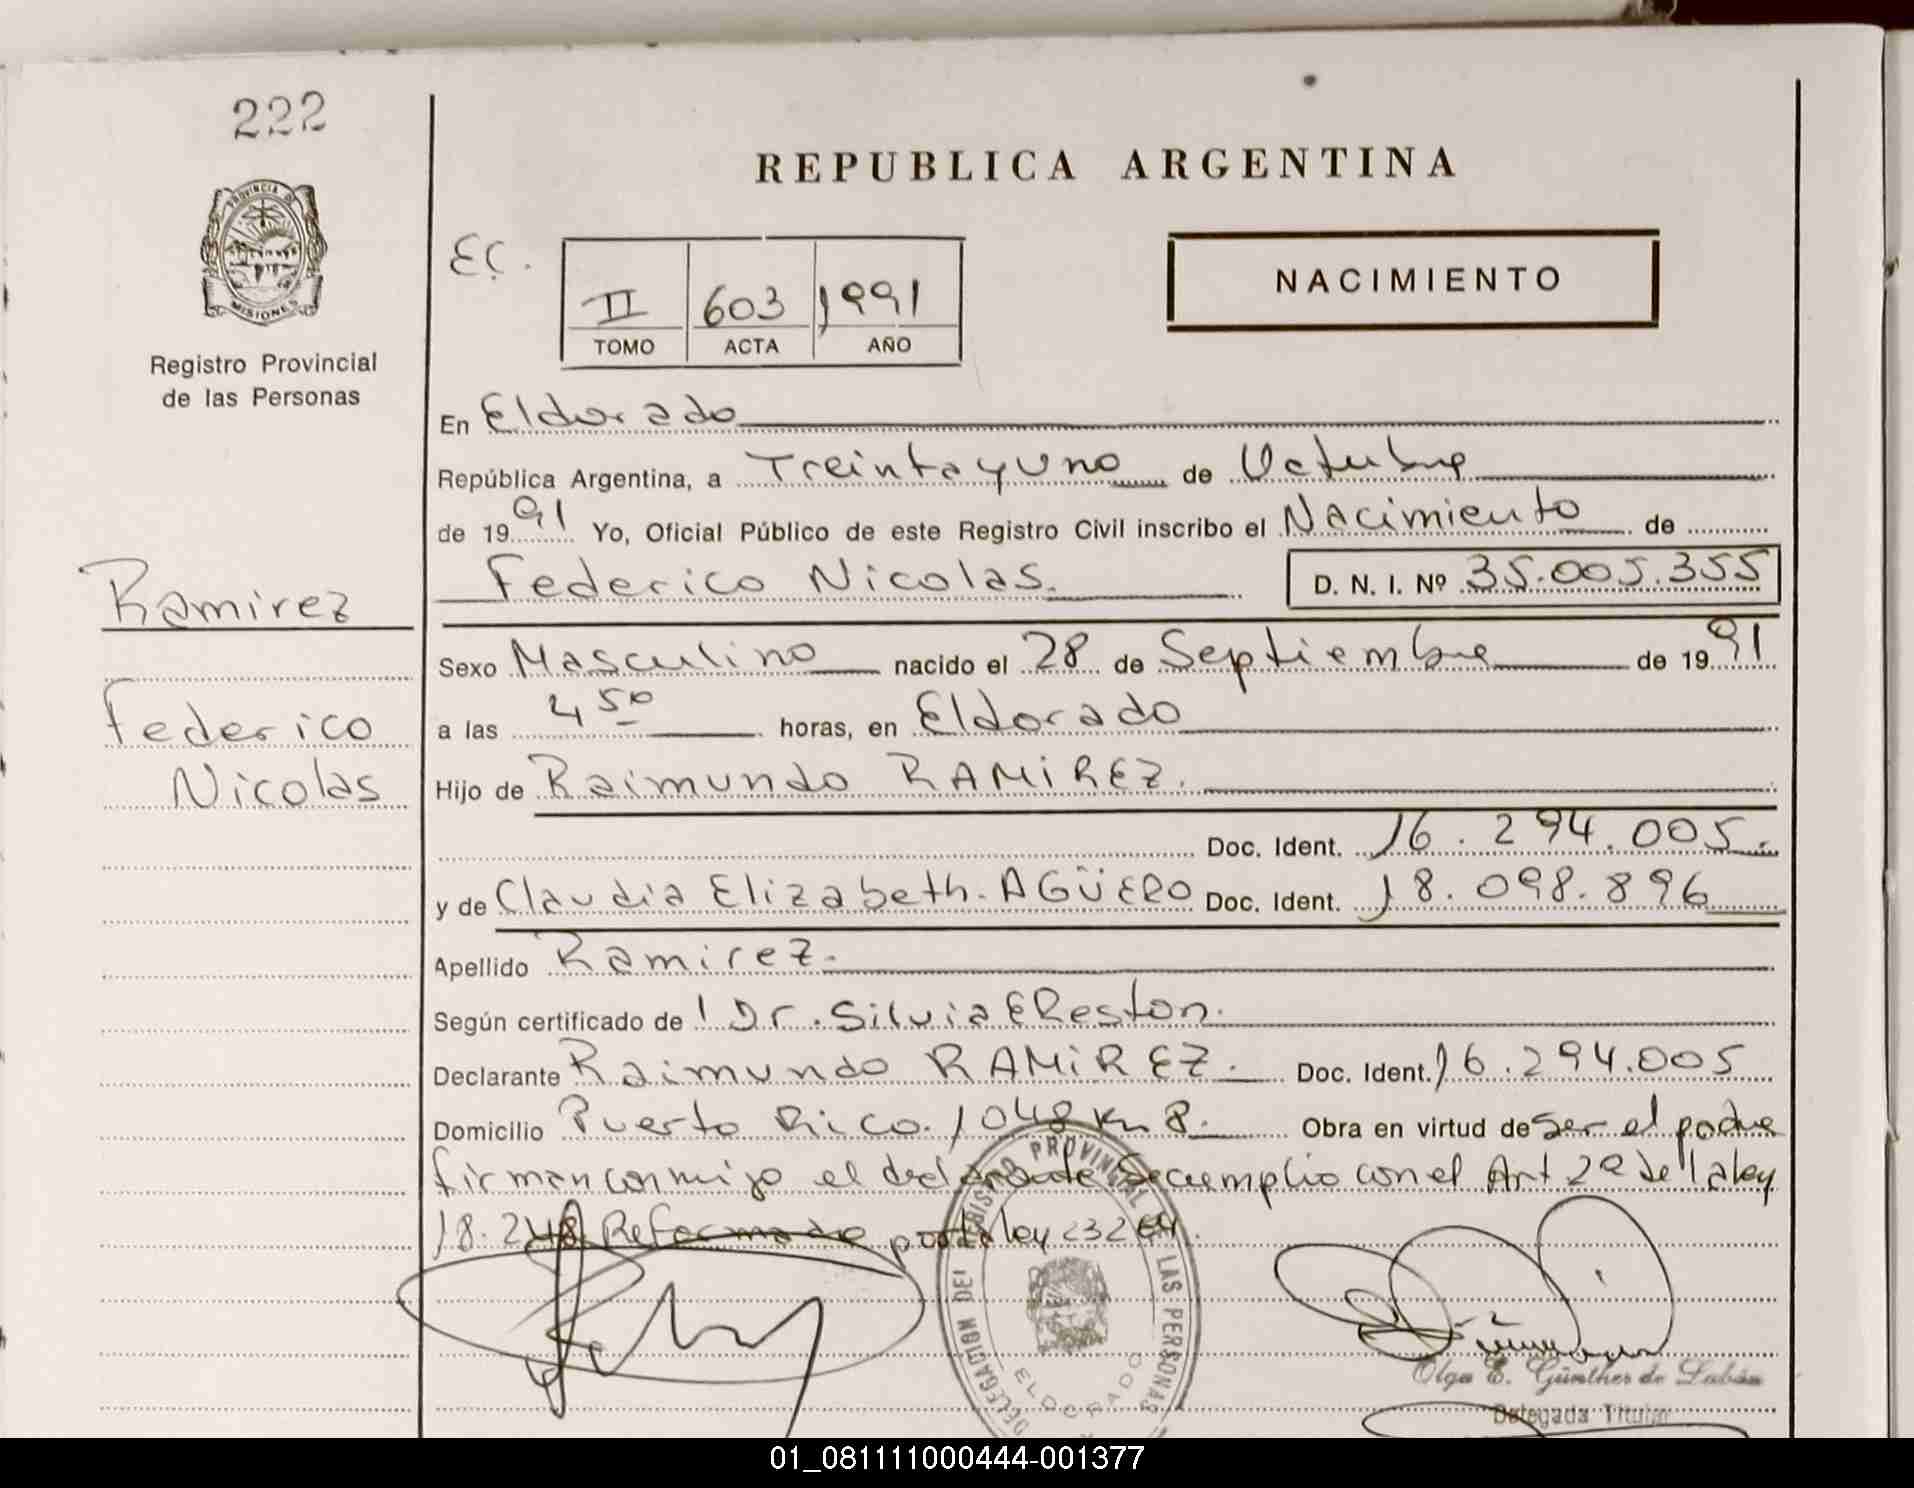 222
PROVINCIA DE
MISIONES
Registro Provincial
de las Personas
REPUBLICA ARGENTINA
EC.
II 603 1991
TOMO ACTA AÑO
NACIMIENTO
En Eldorado
República Argentina, a Treinta y Uno de Octubre
de 1991 Yo, Oficial Público de este Registro Civil inscribo el Nacimiento de
Federico Nicolas. D. N. I. Nº 35.005.355
Ramirez
Federico
Nicolas
Sexo Masculino nacido el 28 de Septiembre de 1991
a las 4 50 horas, en Eldorado
Hijo de Raimundo RAMIREZ.
Doc. Ident. 16.294.005.-
y de Claudia Elizabeth. AGÜERO Doc. Ident. 18.098.896
Apellido Ramirez.
Según certificado de Dr. Silvia E Reston.
Declarante Raimundo RAMIREZ. Doc. Ident. 16.294.005
Domicilio Puerto Rico. 1048 Km 8. Obra en virtud de Ser el padre
firman conmigo el declarante Se cumplio con el Art 2º de la ley
18.248 Reformado por la ley 23264.
DELEGACION DEL REGISTRO PROVINCIAL DE LAS PERSONAS
ELDORADO
Olga E. Günther de Labán
Delegada Titular
01_081111000444-001377